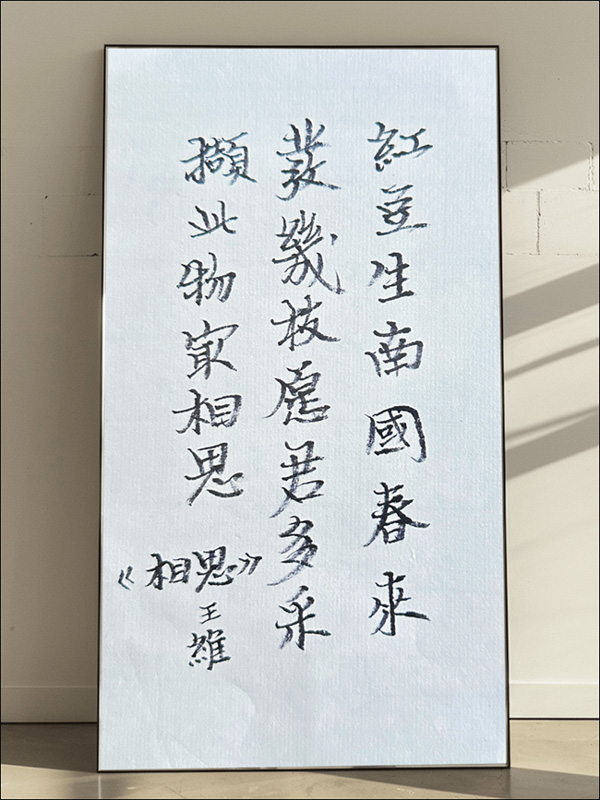 紅豆生南國春來
發幾枝愿君多采
擷此物㝡相思
《相思》
王維